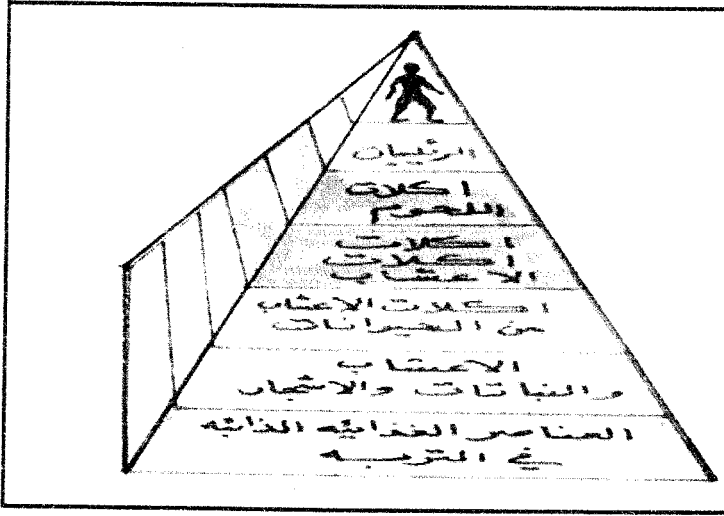 الرئيسيات
اكلات
اللحوم
اكلات
اكلات
الاعشاب
اكلات الاعشاب
من الحيوانات
الاعشاب
والنباتات والاشجار
العناصر الغذائيه الذائبه
في التربه